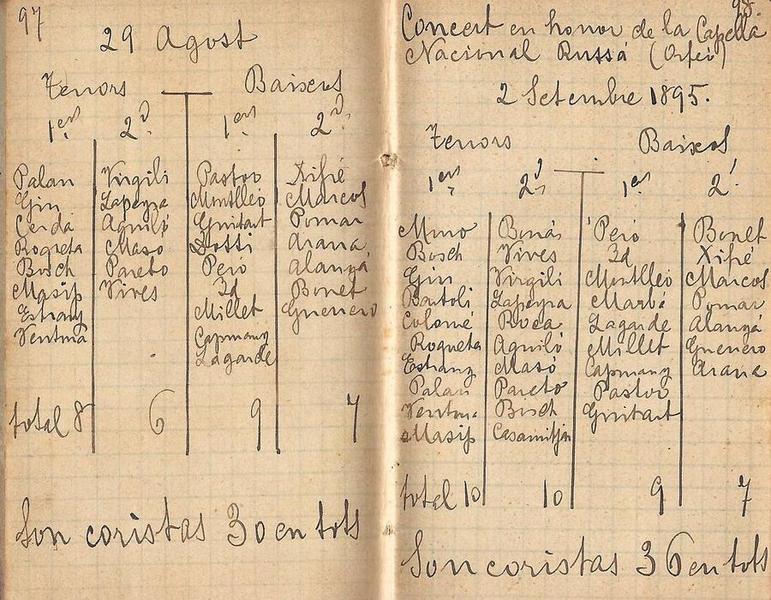 97
29 Agost
Tenors Baixens
1ers 2s 1ers 2s
Palau Virgili Pastor Xifré
Gin Lapeyra Montlleó Marcos
Cerdá Aguiló Guitart Pomar
Roqueta Masó Dotti Arana
Bosch Pareto Peió Alanyá
Masip Vives Id Bonet
Estrany Millet Guerrero
Ventura Capmany
Lagarde
total 8 6 9 7
Son coristas 30 en tots
98
Concert en honor de la Capella
Nacional Russá (Orfeó)
2 Setembre 1895.
Tenors Baixos
1ers 2s 1ers 2s
Miró Bonás Peió Bonet
Bosch Vives Id Xifré
Gin Virgili Montlleó Marcos
Bartoli Lapeyra Marbá Pomar
Colomé Roca Lagarde Alanyá
Roqueta Aguiló Millet Guerrero
Estrany Masó Capmany Arana
Palau Pareto Pastor
Ventura Bosch Guitart
Masip Casamitjana
total 10 10 9 7
Son coristas 36 en tots